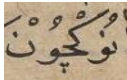 نُوكْچُونْ